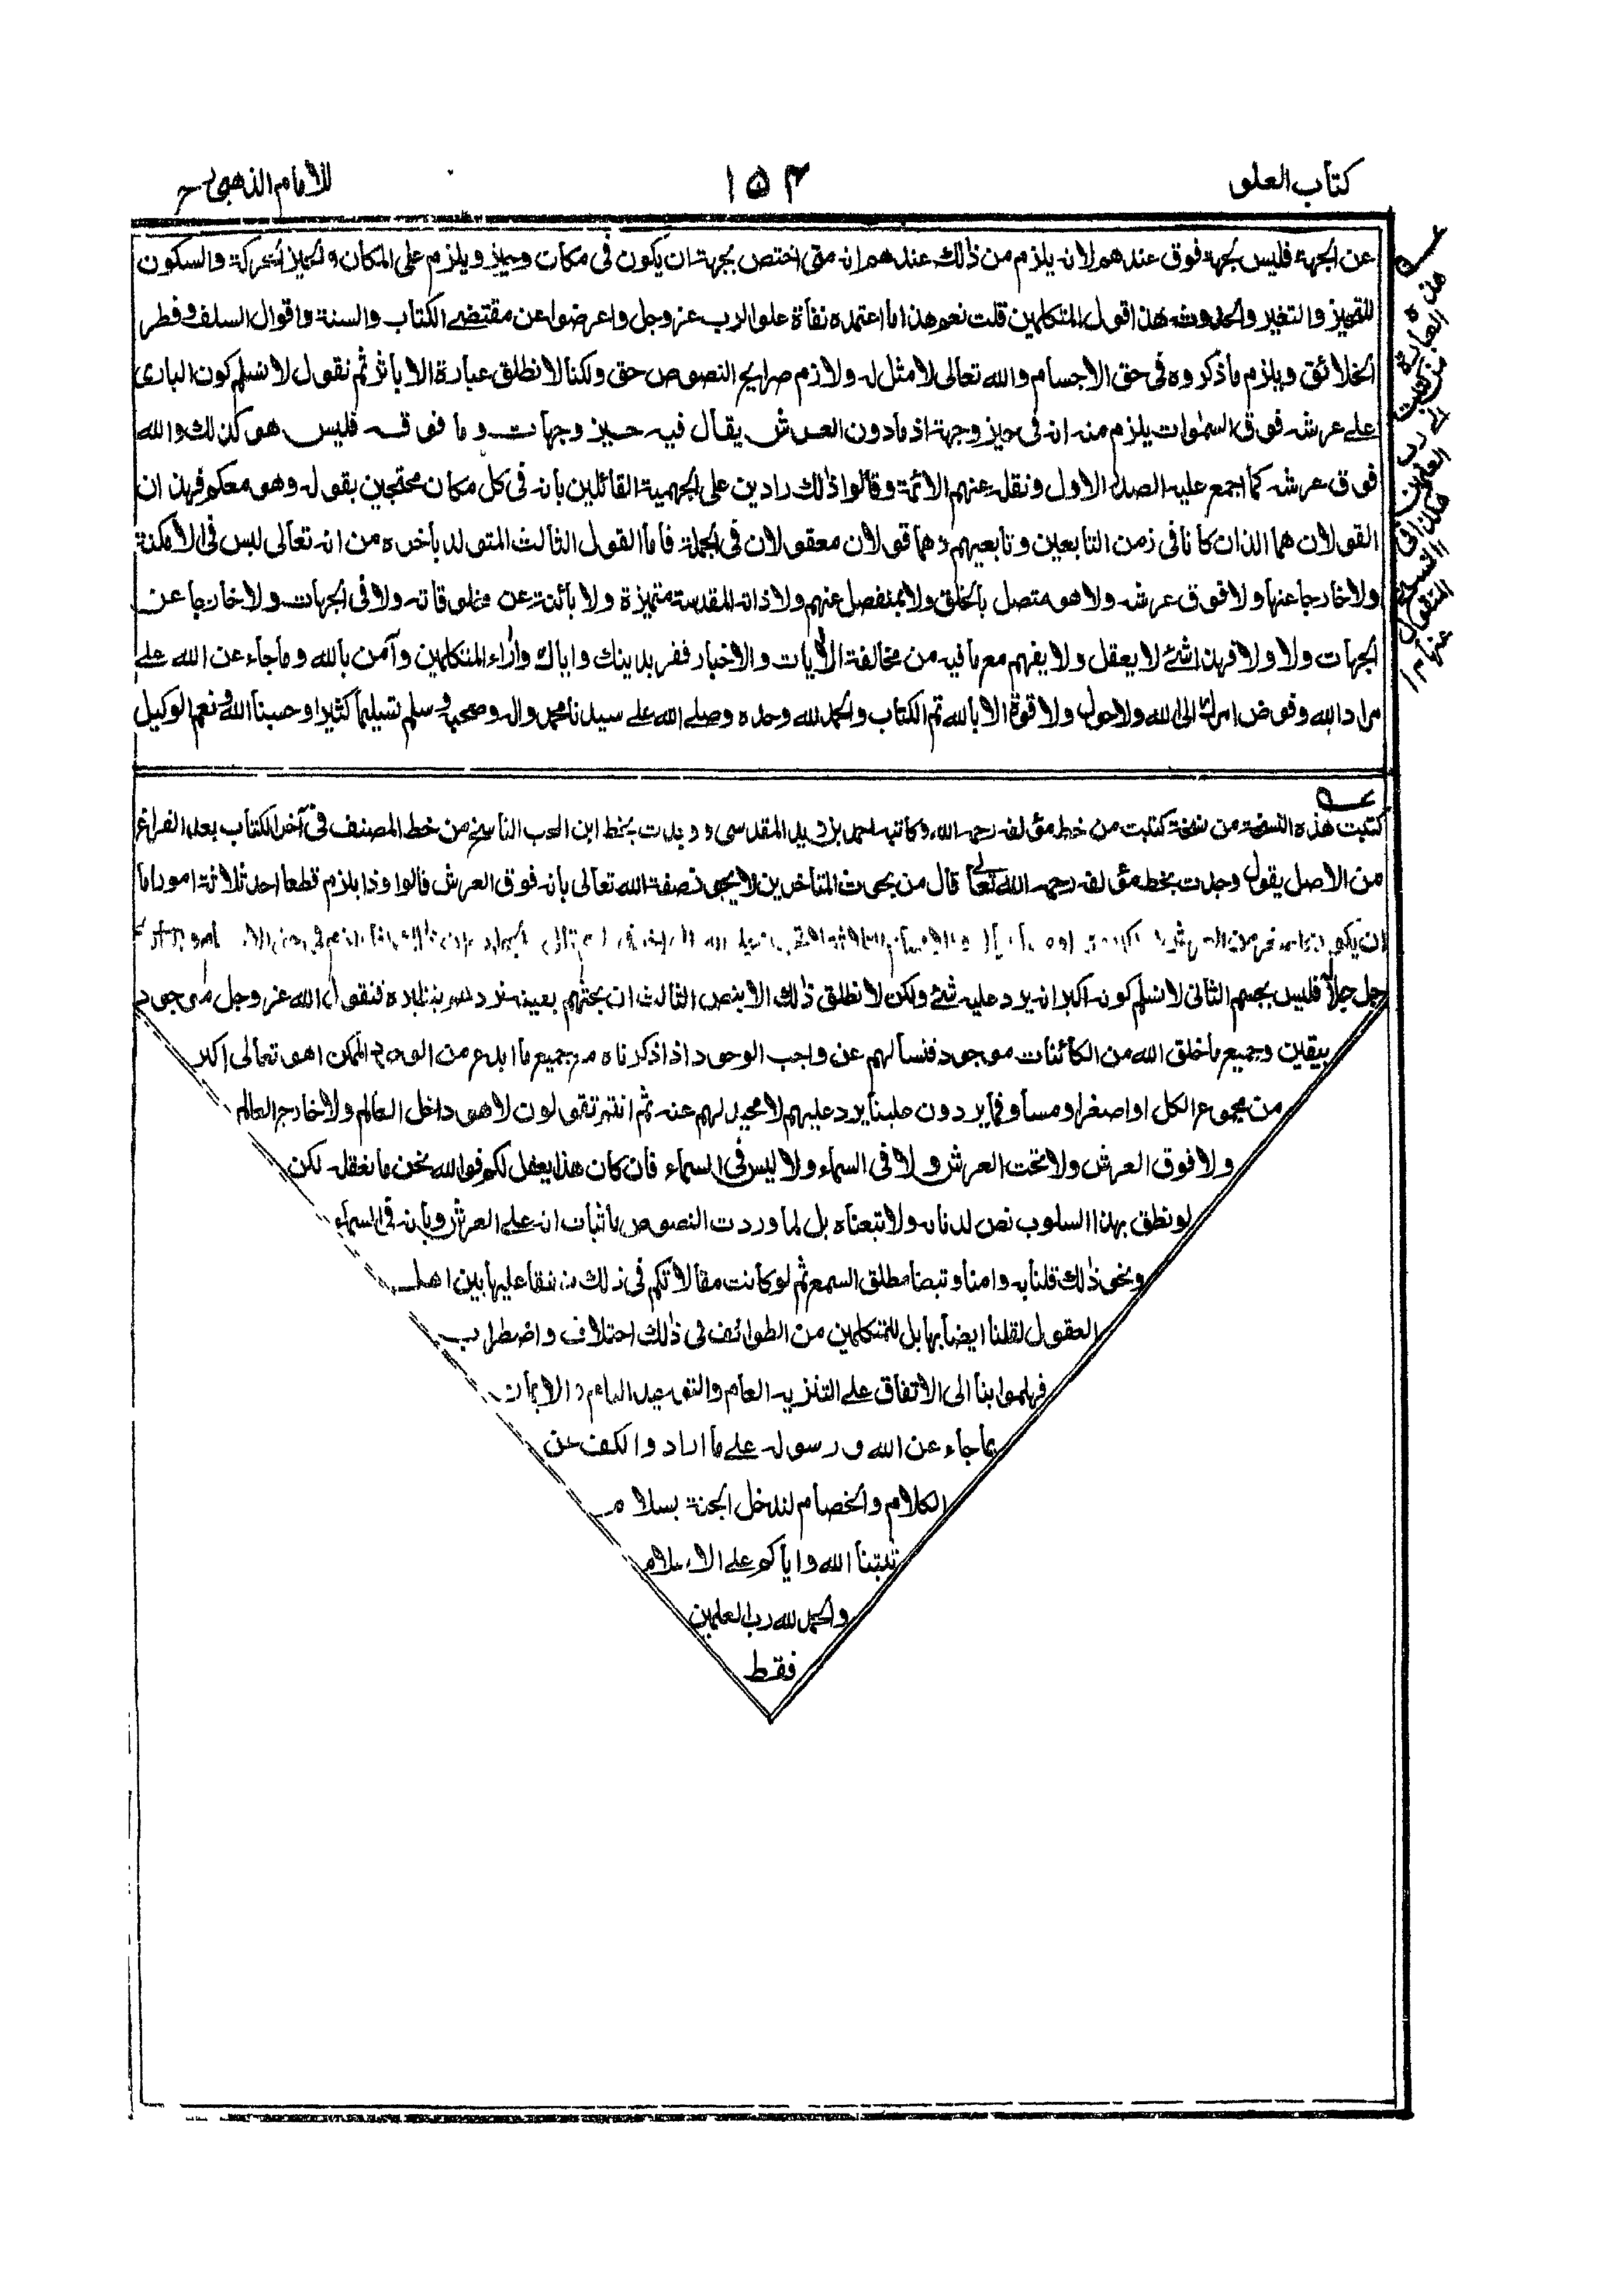 كتاب العلو
١٥٣
للامام الذهبي رح
عن الجهة فليس بجهة فوق عندهم لانه يلزم من ذلك عندهم انه متى اختص بجهة ان يكون في مكان وحيز ويلزم على المكان والحيز الحركة والسكون
للمتحيز والتغير والحدوث هذا قول المتكلمين قلت نعم هذا ما اعتمده نفاة علو الرب عز وجل واعرضوا عن مقتضى الكتاب والسنة واقوال السلف وفطر
الخلائق ويلزم ما ذكروه في حق الاجسام والله تعالى لا مثل له ولازم صرايح النصوص حق ولكنا لا نطلق عبارة الا باثر ثم نقول لا نسلم كون البارى
على عرشه فوق السموات يلزم منه انه في حيز وجهة اذ ما دون العرش يقال فيه حيز وجهات وما فوقه فليس هو كذلك والله
فوق عرشه كما اجمع عليه الصدر الاول ونقله عنهم الائمة وقالوا ذلك رادين على الجهمية القائلين بانه في كل مكان محتجين بقوله وهو معكم فهذان
القولان هما اللذان كانا في زمن التابعين وتابعيهم وهما قولان معقولان في الجملة فاما القول الثالث المتولد باخره من انه تعالى ليس في الامكنة
ولا خارجا عنها ولا فوق عرشه ولا هو متصل بالخلق ولا بمنفصل عنهم ولا ذاته المقدسة متميزة ولا بائنة عن مخلوقاته ولا في الجهات ولا خارجا عن
الجهات ولا ولا فهذا شئ لا يعقل ولا يفهم مع ما فيه من مخالفة الايات والاخبار ففر بدينك واياك وآراء المتكلمين وآمن بالله وما جاء عن الله على
مراد الله وفوض امرك الى الله ولا حول ولا قوة الا بالله تم الكتاب والحمد لله وحده وصلى الله على سيدنا محمد واله وصحبه وسلم تسليما كثيرا وحسبنا الله ونعم الوكيل
هذه
العبارة
من كتبت
الى رب
العلمين
هكذا في
النسخة
المنقول
عنها ١٢
كتبت هذه النسخة من نسخة كتبت من خط مؤلفه رحمه الله وكاتبه احمد بن زيد المقدسى ووجدت بخط ابن المحب الناسخ من خط المصنف في آخر الكتاب بعد الفراغ
من الاصل يقول وجدت بخط مؤلفه رحمه الله تعالى قال من بحوث المتأخرين لا يجوز نصفة الله تعالى بانه فوق العرش قالوا وذا يلزم قطعا احد ثلاثة امور اما
ان يكون
جل جلاله فليس بجسم الثانى لا نسلم كونه اكبر انه يرد عليه شئ ولكن لا نطلق ذلك الا بنص الثالث ان بحثهم بعينه نرد فنقول الله عز وجل موجود
بيقين وجميع ما خلق الله من الكائنات موجود فنسألهم عن واجب الوجود اذا ذكرناه مع جميع ما ابدع من الوجود الممكن اهو تعالى اكبر
من مجموع الكل او اصغر او مساو فما يردون علينا يرد عليهم لا محيد لهم عنه ثم انتم تقولون لا هو داخل العالم ولا خارج العالم
ولا فوق العرش ولا تحت العرش ولا في السماء ولا ليس في السماء فان كان هذا يعقل لكم فوالله نحن ما نعقله لكن
لو نطق بهذا السلوب نص لدنا به ولا تبعناه بل لما وردت النصوص باثبات انه على العرش وبانه في السماء
ونحو ذلك قلنا به وامنا وتبعنا مطلق السمع ثم لو كانت مقالاتكم في ذلك متفقا عليها بين اهل
العقول لقلنا ايضا بها بل للمتكلمين من الطوائف في ذلك اختلاف واضطراب
فهلموا بنا الى الاتفاق على التنزيه العام والتوحيد التام والايمان
بما جاء عن الله ورسوله على ما اراد والكف عن
الكلام والخصام لندخل الجنة بسلام
ثبتنا الله واياكم على الاسلام
والحمد لله رب العلمين
فقط